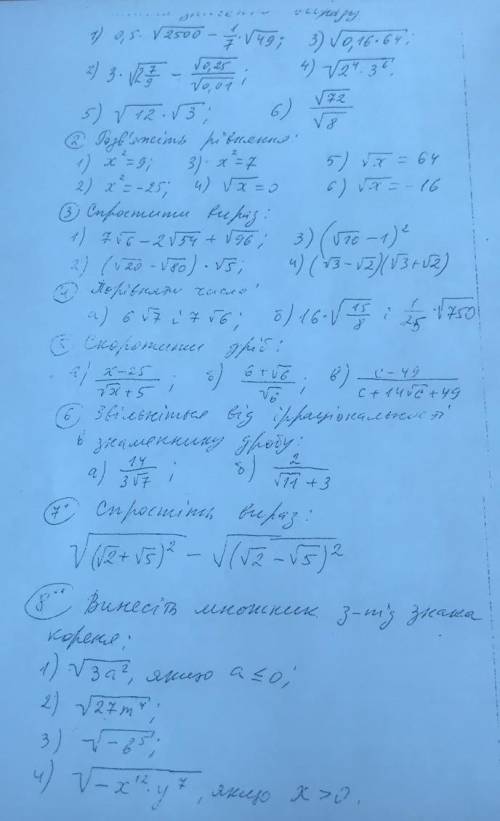 значення виразу
1) 0,5·√2500 − 1/7·√49; 3) √0,16·64;
2) 3·√2 7/9 − √0,25/√0,01; 4) √2⁴·3⁶.
5) √12·√3; 6) √72/√8
② Розв'яжіть рівняння:
1) x²=9; 3) x²=7 5) √x = 64
2) x²=−25; 4) √x=0 6) √x=−16
③ Спростити вираз:
1) 7√6 − 2√54 + √96; 3) (√10 − 1)²
2) (√20 − √80)·√5; 4) (√3−√2)(√3+√2)
④ Порівняти числа:
а) 6√7 і 7√6; б) 16·√15/8 і 1/25·√750
⑤ Скоротити дріб:
а) x−25/√x+5; б) 6+√6/√6; в) c−49/c+14√c+49
⑥ Звільніться від ірраціональності
в знаменнику дробу:
а) 14/3√7; б) 2/√11+3
7° Спростіть вираз:
√(√2+√5)² − √(√2−√5)²
8°° Винесіть множник з-під знака
кореня:
1) √3a², якщо a≤0;
2) √27m⁴;
3) √−b⁵;
4) √−x¹²·y⁷, якщо x>0.